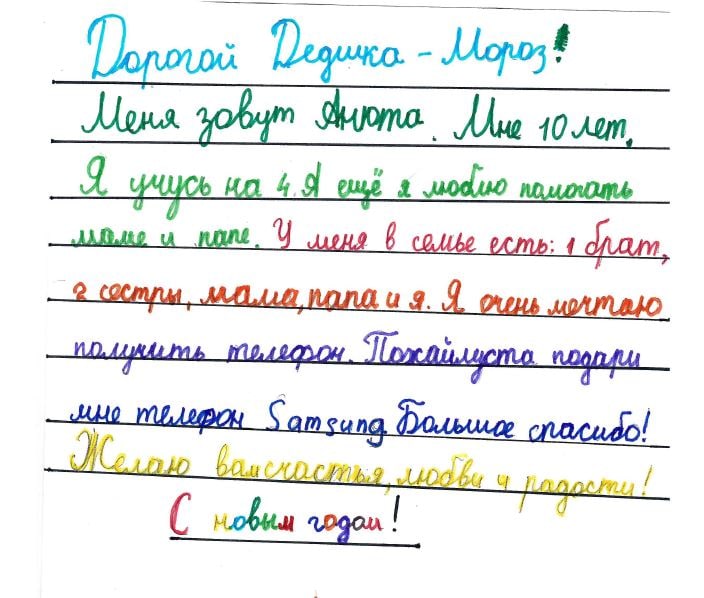 Дорогой Дедушка - Мороз!
Меня зовут Анюта. Мне 10 лет.
Я учусь на 4. А ещё я люблю помогать
маме и папе. У меня в семье есть: 1 брат,
2 сестры, мама, папа и я. Я очень мечтаю
получить телефон. Пожайлуста подари
мне телефон Samsung. Большое спасибо!
Желаю вам счастья, любви и радости!
С новым годом!